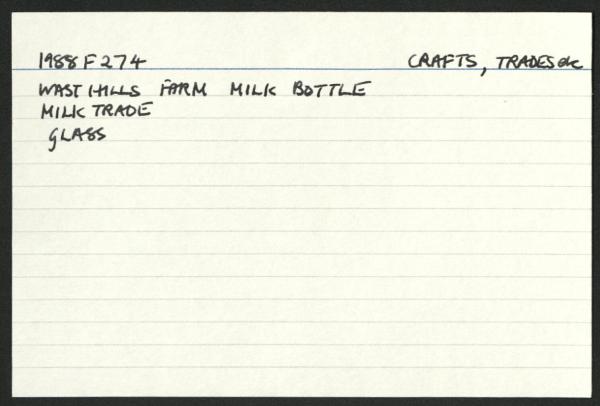 1988 F 274 CRAFTS, TRADES etc
WAST HILLS FARM MILK BOTTLE
MILK TRADE
GLASS